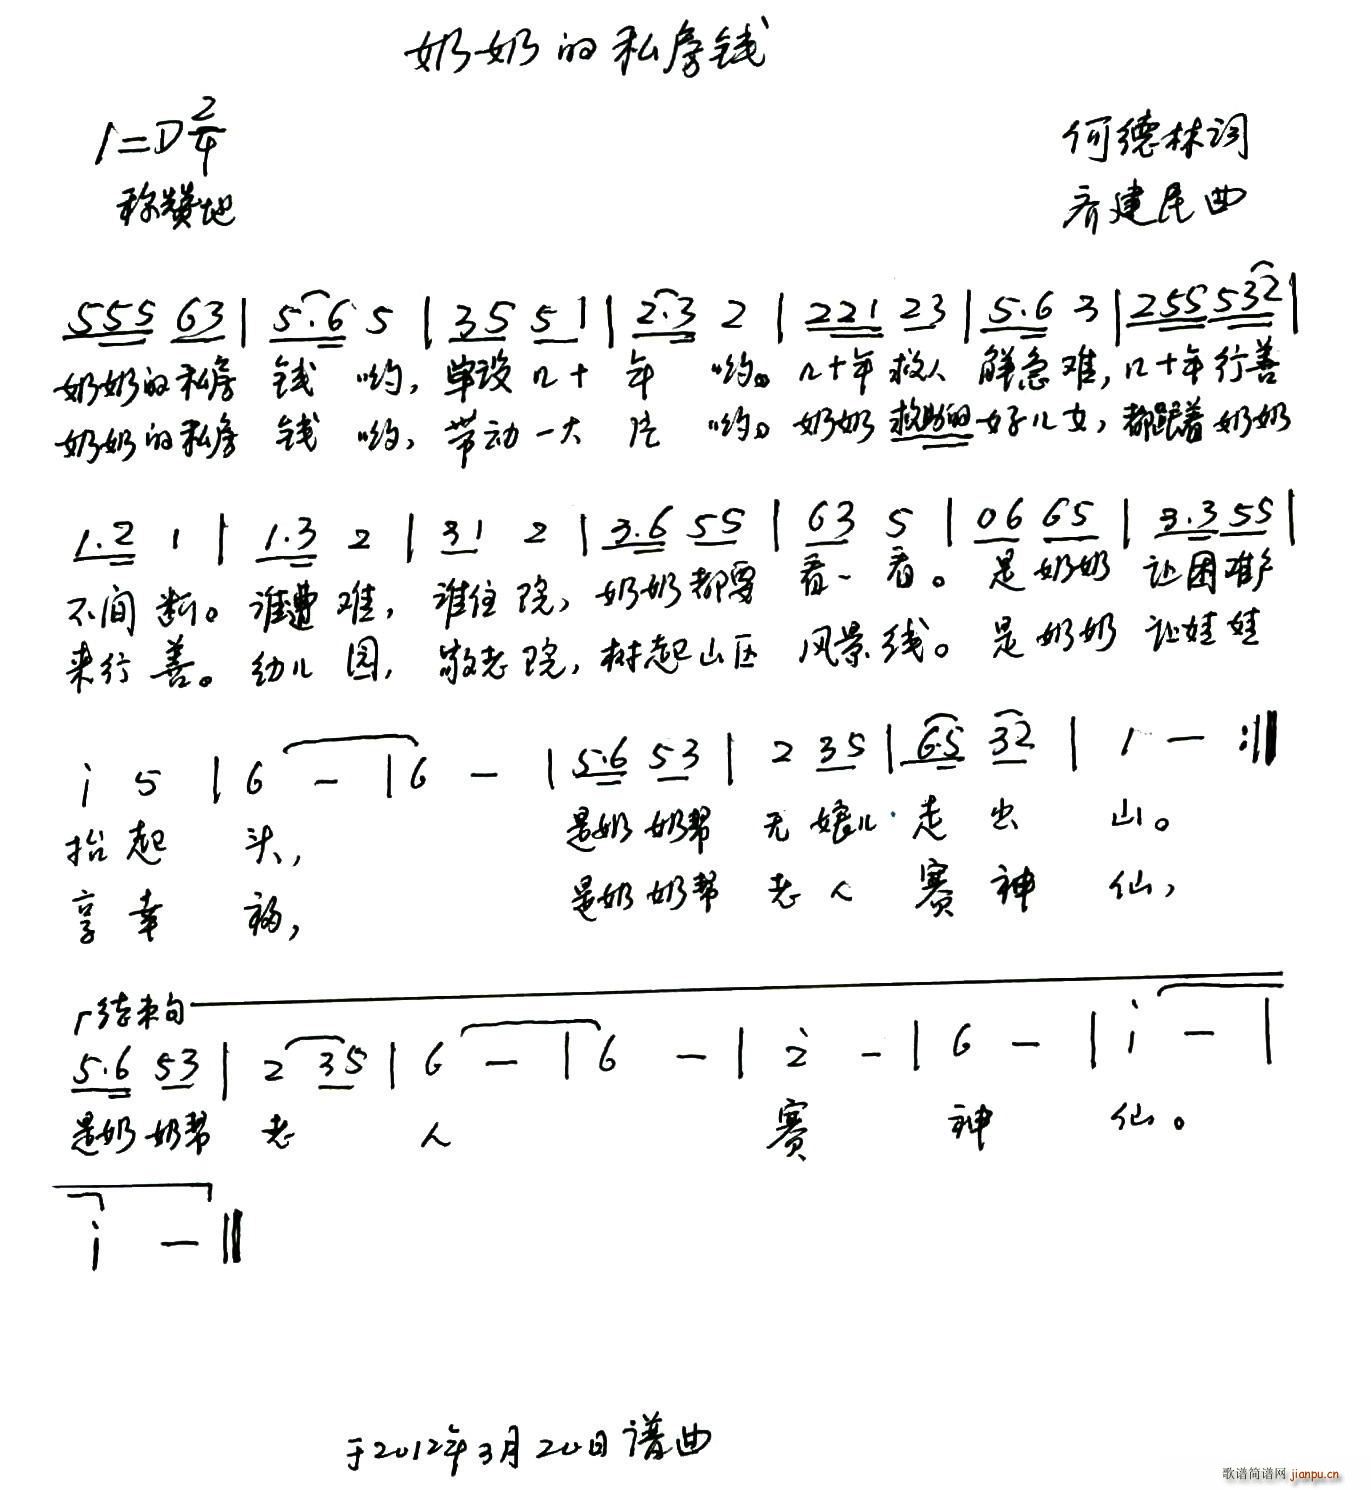 奶奶的私房钱
1=D 2/4
何德林词
称赞地
齐建民曲
555 63 | 5.6 5 | 35 51 | 2.3 2 | 221 23 | 5.6 3 | 255 532 |
奶奶的私房 钱 哟, 单设几十 年 哟。几十年救人 解急难, 几十年行善
奶奶的私房 钱 哟, 带动一大 片 哟。奶奶救助的好儿女, 都跟着奶奶
1.2 1 | 1.3 2 | 31 2 | 3.6 55 | 63 5 | 06 65 | 3.3 55 |
不间断。谁遭难, 谁住院, 奶奶都要 看一看。是奶奶 让困难户
来行善。幼儿园, 敬老院, 树起山区 风景线。是奶奶 让娃娃
i 5 | 6 — | 6 — | 5.6 53 | 2 35 | 6.5 32 | 1 — :‖
抬起 头, 是奶奶帮 无娘儿 走出 山。
享幸 福, 是奶奶帮 老人 赛神 仙,
结束句
5.6 53 | 2 35 | 6 — | 6 — | 2̇ — | 6 — | i — |
是奶奶帮 老 人 赛 神 仙。
i — ‖
于2012年3月20日谱曲
歌谱简谱网 jianpu.cn